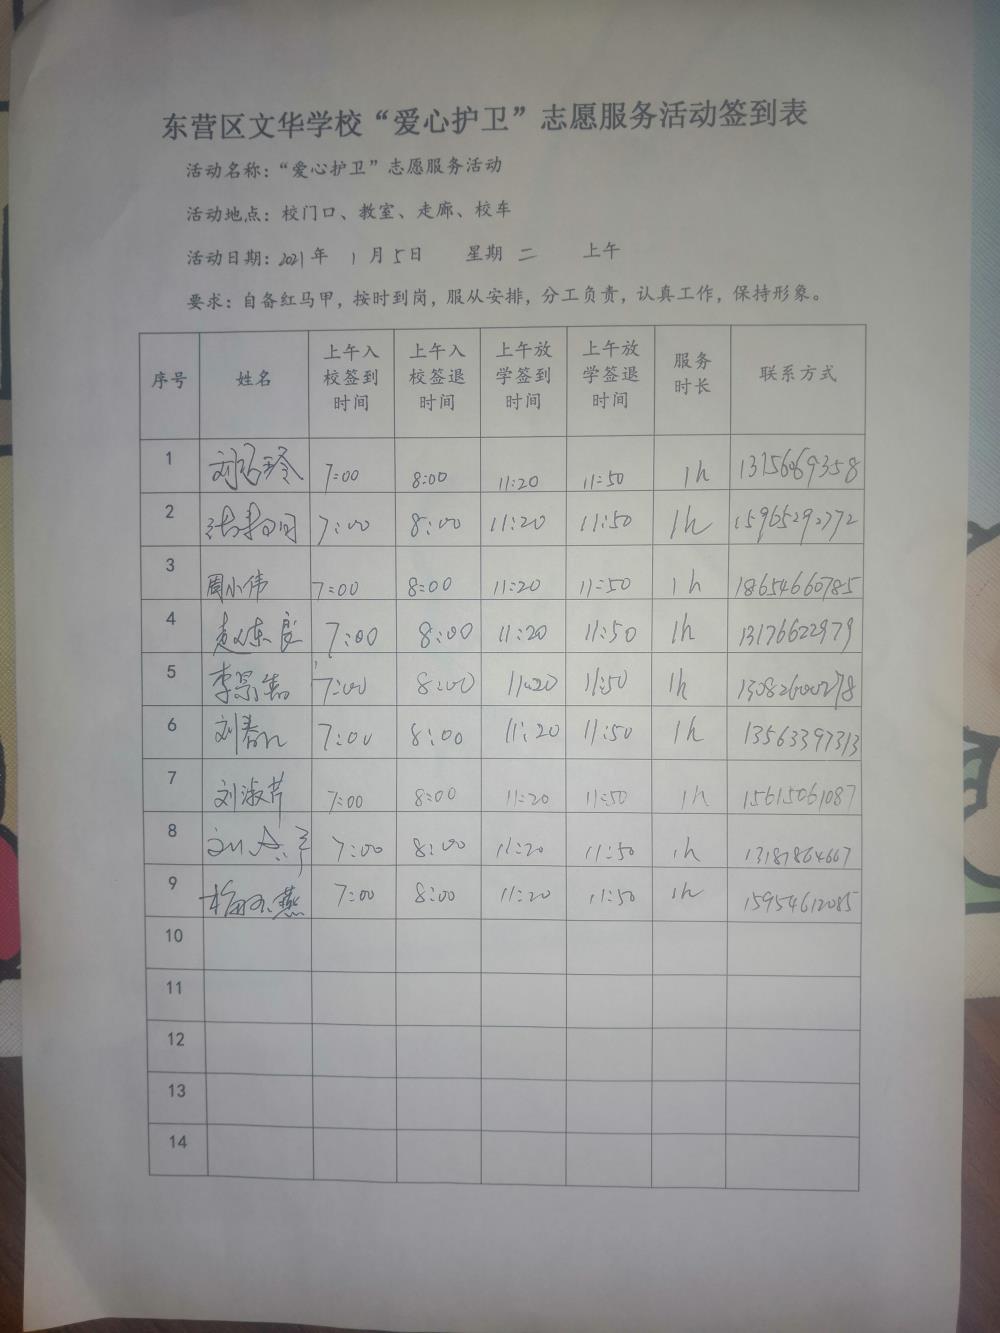 东营区文华学校“爱心护卫”志愿服务活动签到表
活动名称：“爱心护卫”志愿服务活动
活动地点：校门口、教室、走廊、校车
活动日期：2021年 1月5日 星期 二 上午
要求：自备红马甲，按时到岗，服从安排，分工负责，认真工作，保持形象。
序号 姓名 上午入校签到时间 上午入校签退时间 上午放学签到时间 上午放学签退时间 服务时长 联系方式
1 7:00 8:00 11:20 11:50 1h
2 7:00 8:00 11:20 11:50 1h 15965292772
3 周小伟 7:00 8:00 11:20 11:50 1h 18654660785
4 7:00 8:00 11:20 11:50 1h 13176622979
5 7:00 8:00 11:20 11:50 1h 13082600278
6 7:00 8:00 11:20 11:50 1h 13563397313
7 刘淑芹 7:00 8:00 11:20 11:50 1h 15615061087
8 7:00 8:00 11:20 11:50 1h 13181864667
9 7:00 8:00 11:20 11:50 1h 15954612085
10
11
12
13
14